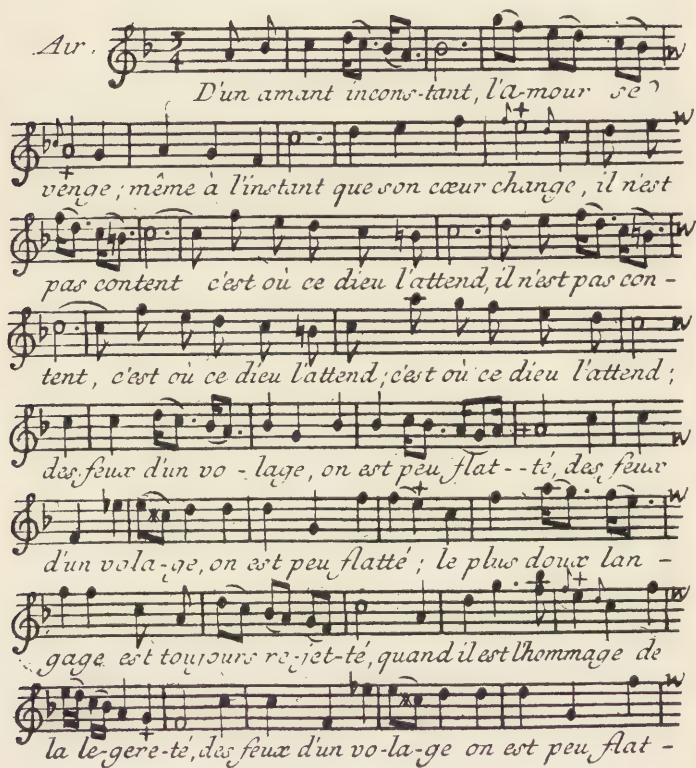 Air.
3
4
D'un amant incons-tant, l'a-mour se
venge; même à l'instant que son cœur change, il n'est
pas content c'est où ce dieu l'attend, il n'est pas con-
tent, c'est où ce dieu l'attend; c'est où ce dieu l'attend;
des feux d'un vo-lage, on est peu flat--té, des feux
d'un vola-ge, on est peu flatté; le plus doux lan-
gage est toujours re-jet-té, quand il est l'hommage de
la le-gere-té, des feux d'un vo-la-ge on est peu flat-